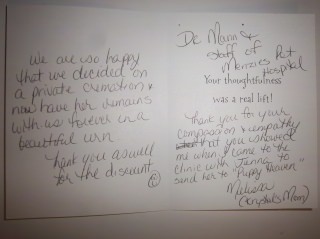 We are also happy
that we decided on
a private cremation &
now have her remains
with us forever in a
beautiful urn.
Thank you as well
for the discount
Dr. Mann &
Staff of
Menzies Pet
Hospital
Your thoughtfulness
was a real lift!
Thank you for your
compassion & empathy
that you showed
me when I came to the
clinic with Jenna to
send her to "Puppy Heaven"
Melissa
(Krystal's Mom)